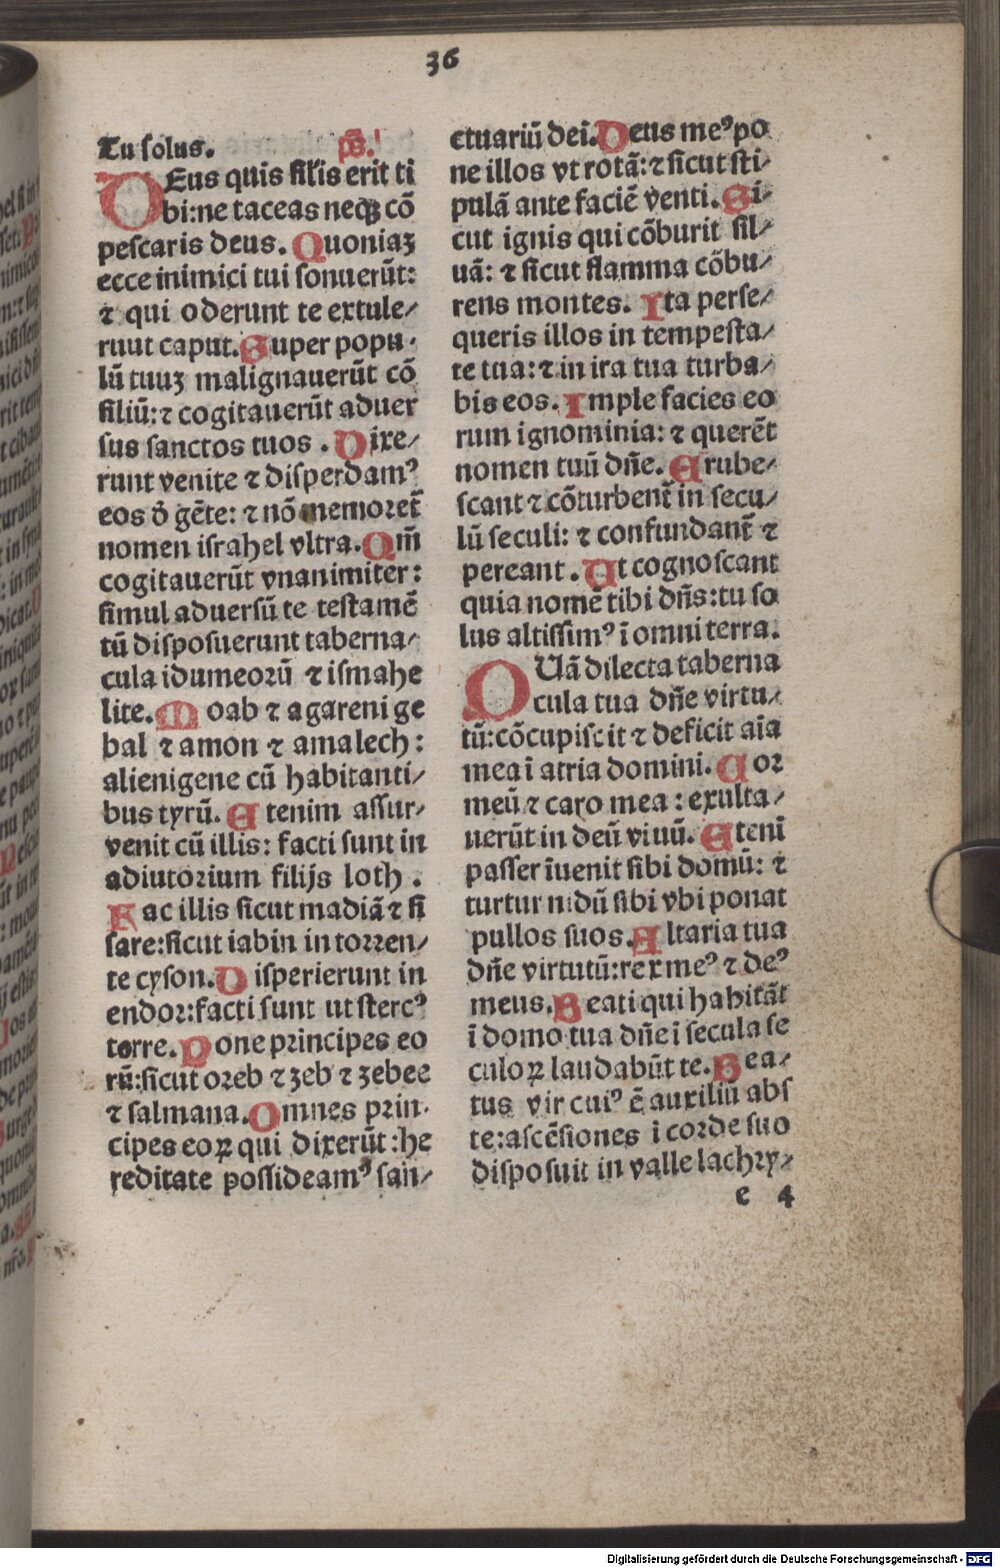 36
Tu solus. ps̄.
DEus quis sil'is erit ti
bi:ne taceas neqꝫ cō
pescaris deus. Quoniaꝫ
ecce inimici tui sonuerūt:
⁊ qui oderunt te extule/
runt caput. Super popu-
lū tuuꝫ malignauerūt cō
siliū:⁊ cogitauerūt aduer
sus sanctos tuos . Dixe/
runt venite ⁊ disperdamꝰ
eos d̄ gēte: ⁊ nō memoret̄
nomen israhel vltra. Qm̄
cogitauerūt vnanimiter:
simul aduersū te testamē
tū disposuerunt taberna/
cula idumeoꝛū ⁊ ismahe
lite. Moab ⁊ agareni ge
bal ⁊ amon ⁊ amalech:
alienigene cū habitanti/
bus tyrū. Etenim assur/
venit cū illis: facti sunt in
adiutoꝛium filijs loth .
Fac illis sicut madiā ⁊ si
sare:sicut iabin in toꝛren/
te cyson. Disperierunt in
endoꝛ:facti sunt ut stercꝰ
terre. Pone pꝛincipes eo
rū:sicut oꝛeb ⁊ zeb ⁊ zebee
⁊ salmana. Omnes pꝛin-
cipes eoꝝ qui dixerūt :he
reditate possideamꝰ san/
ctuariū dei. Deus meꝰ po
ne illos vt rotā:⁊ sicut sti/
pulā ante faciē venti. Si/
cut ignis qui cōburit sil/
uā: ⁊ sicut flamma cōbu/
rens montes. Ita perse/
queris illos in tempesta/
te tua:⁊ in ira tua turba/
bis eos. Imple facies eo
rum ignominia: ⁊ querēt
nomen tuū dn̄e. Erube/
scant ⁊ cōturbent̄ in secu/
lū seculi: ⁊ confundant̄ ⁊
pereant . Ut cognoscant
quia nomē tibi dn̄s:tu so
lus altissimꝰ ī omni terra.
QUā dilecta taberna
cula tua dn̄e virtu/
tū:cōcupiscit ⁊ deficit aīa
mea ī atria domini. Coꝛ
meū ⁊ caro mea : exulta/
uerūt in deū viuū. Etenī
passer īuenit sibi domū: ⁊
turtur nidū sibi vbi ponat
pullos suos. Altaria tua
dn̄e virtutū:rex meꝰ ⁊ deꝰ
meus. Beati qui habitāt
ī domo tua dn̄e ī secula se
culoꝝ laudabūt te. Bea/
tus vir cuiꝰ ē auxiliū abs
te:ascēsiones ī coꝛde suo
disposuit in valle lachry/
e 4
Digitalisierung gefördert durch die Deutsche Forschungsgemeinschaft - DFG